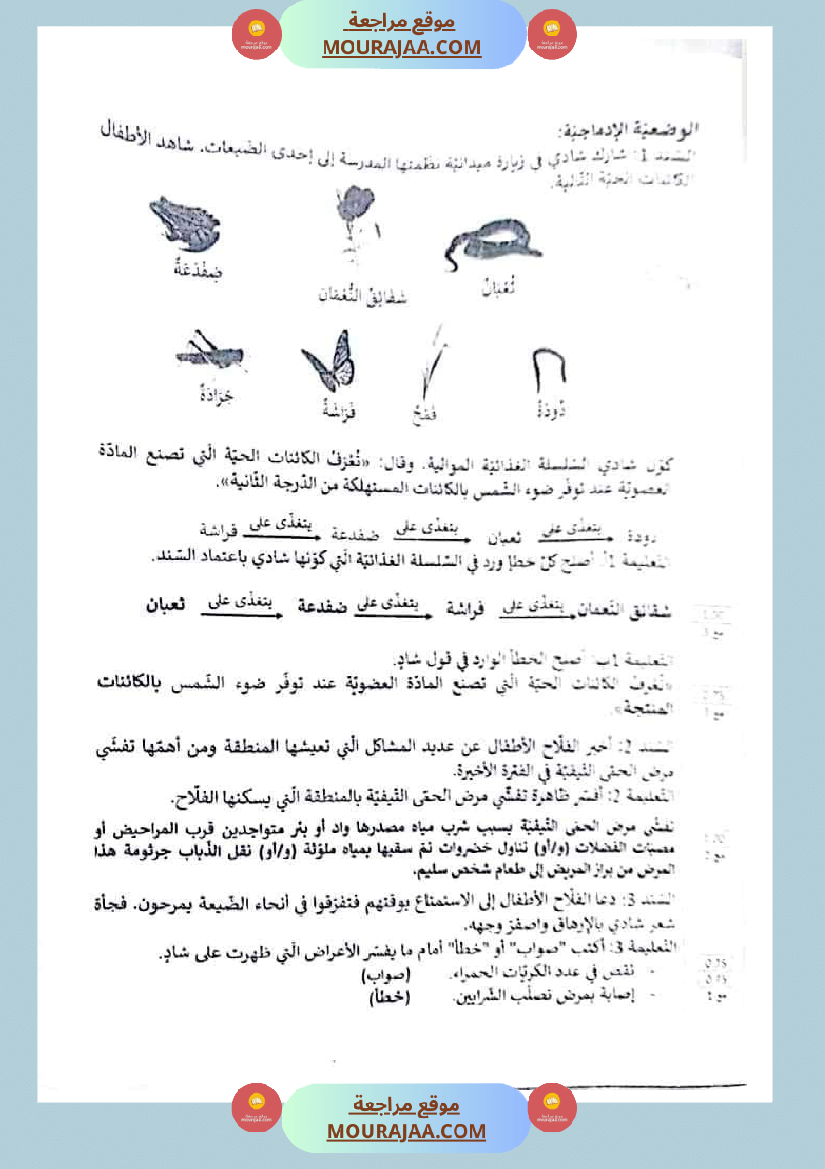 موقع مراجعة
MOURAJAA.COM
الوضعيّة الإدماجيّة:
السّند 1: شارك شادي في زيارة ميدانيّة نظّمتها المدرسة إلى إحدى الضّيعات. شاهد الأطفال
الكائنات الحيّة التّالية.
ضِفْدَعَةٌ
شَقَائِقُ النُّعْمَان
ثُعْبَانٌ
جَرَادَةٌ
فَرَاشَةٌ
قَمْحٌ
دُودَةٌ
كوّن شادي السّلسلة الغذائيّة الموالية. وقال: «نُعَرِّفُ الكائنات الحيّة الّتي تصنع المادّة
العضويّة عند توفّر ضوء الشّمس بالكائنات المستهلكة من الدّرجة الثّانية».
دودة يتغذّى على ثعبان يتغذّى على ضفدعة يتغذّى على فراشة
التّعليمة 1أ: أصلح كلّ خطإ ورد في السّلسلة الغذائيّة الّتي كوّنها شادي باعتماد السّند.
شقائق النّعمان يتغذّى على فراشة يتغذّى على ضفدعة يتغذّى على ثعبان
التّعليمة 1ب: أصلح الخطأ الوارد في قول شادٍ.
«نُعَرِّفُ الكائنات الحيّة الّتي تصنع المادّة العضويّة عند توفّر ضوء الشّمس بالكائنات
المنتجة».
السّند 2: أخبر الفلّاح الأطفال عن عديد المشاكل الّتي تعيشها المنطقة ومن أهمّها تفشّي
مرض الحمّى التّيفيّة في الفترة الأخيرة.
التّعليمة 2: أفسّر ظاهرة تفشّي مرض الحمّى التّيفيّة بالمنطقة الّتي يسكنها الفلّاح.
تفشّي مرض الحمّى التّيفيّة بسبب شرب مياه مصدرها واد أو بئر متواجدين قرب المراحيض أو
مصبّات الفضلات (و/أو) تناول خضروات تمّ سقيها بمياه ملوّثة (و/أو) نقل الذّباب جرثومة هذا
المرض من براز المريض إلى طعام شخص سليم.
السّند 3: دعا الفلّاح الأطفال إلى الاستمتاع بوقتهم فتفرّقوا في أنحاء الضّيعة يمرحون. فجأة
شعر شادي بالإرهاق واصفرّ وجهه.
التّعليمة 3: أكتب "صواب" أو "خطأ" أمام ما يفسّر الأعراض الّتي ظهرت على شادٍ.
- نقص في عدد الكريّات الحمراء. (صواب)
- إصابة بمرض تصلّب الشّرايين. (خطأ)
0.75
موقع مراجعة
MOURAJAA.COM